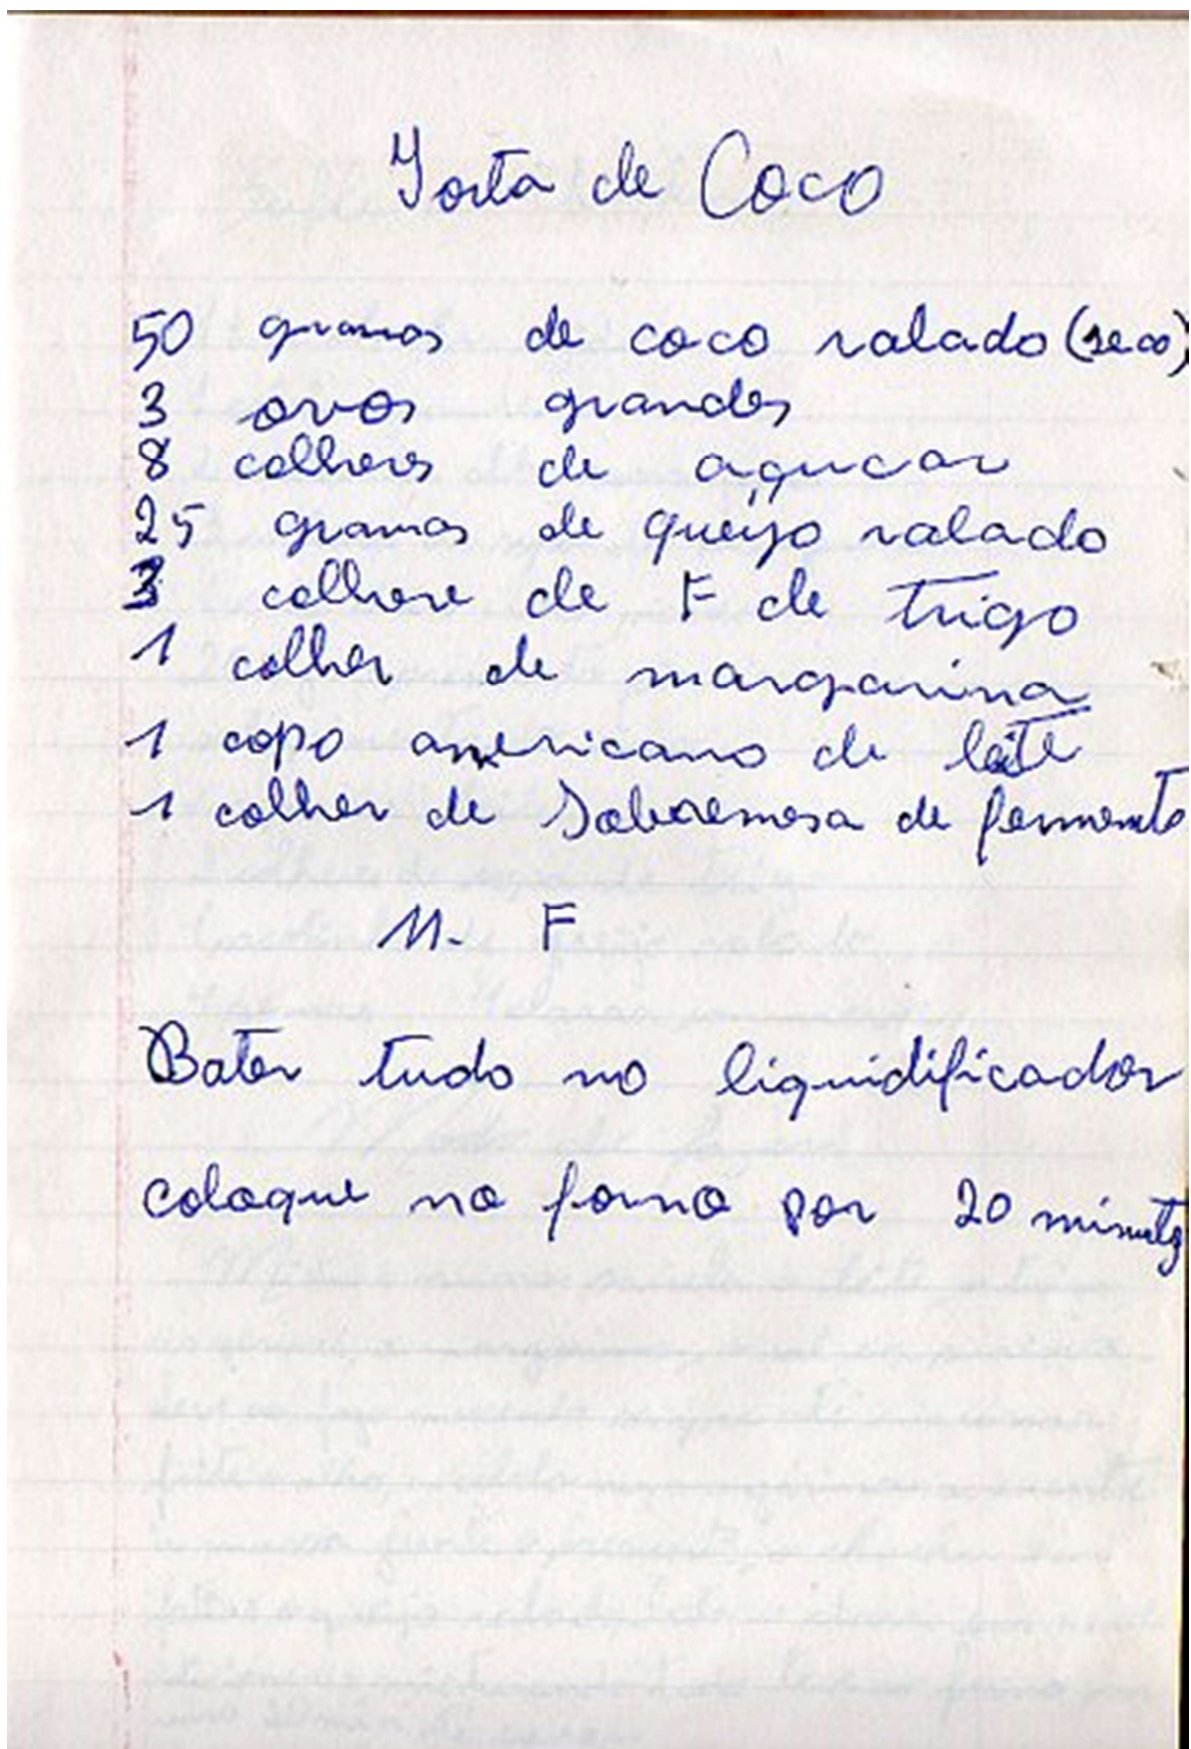 Torta de Coco
50 gramas de coco ralado (seco)
3 ovos grandes
8 colheres de açucar
25 gramas de queijo ralado
3 colhere de F de trigo
1 colher de margarina
1 copo americano de leite
1 colher de Sobremesa de fermento
M. F
Bater tudo no liquidificador
coloque no forno por 20 minutos